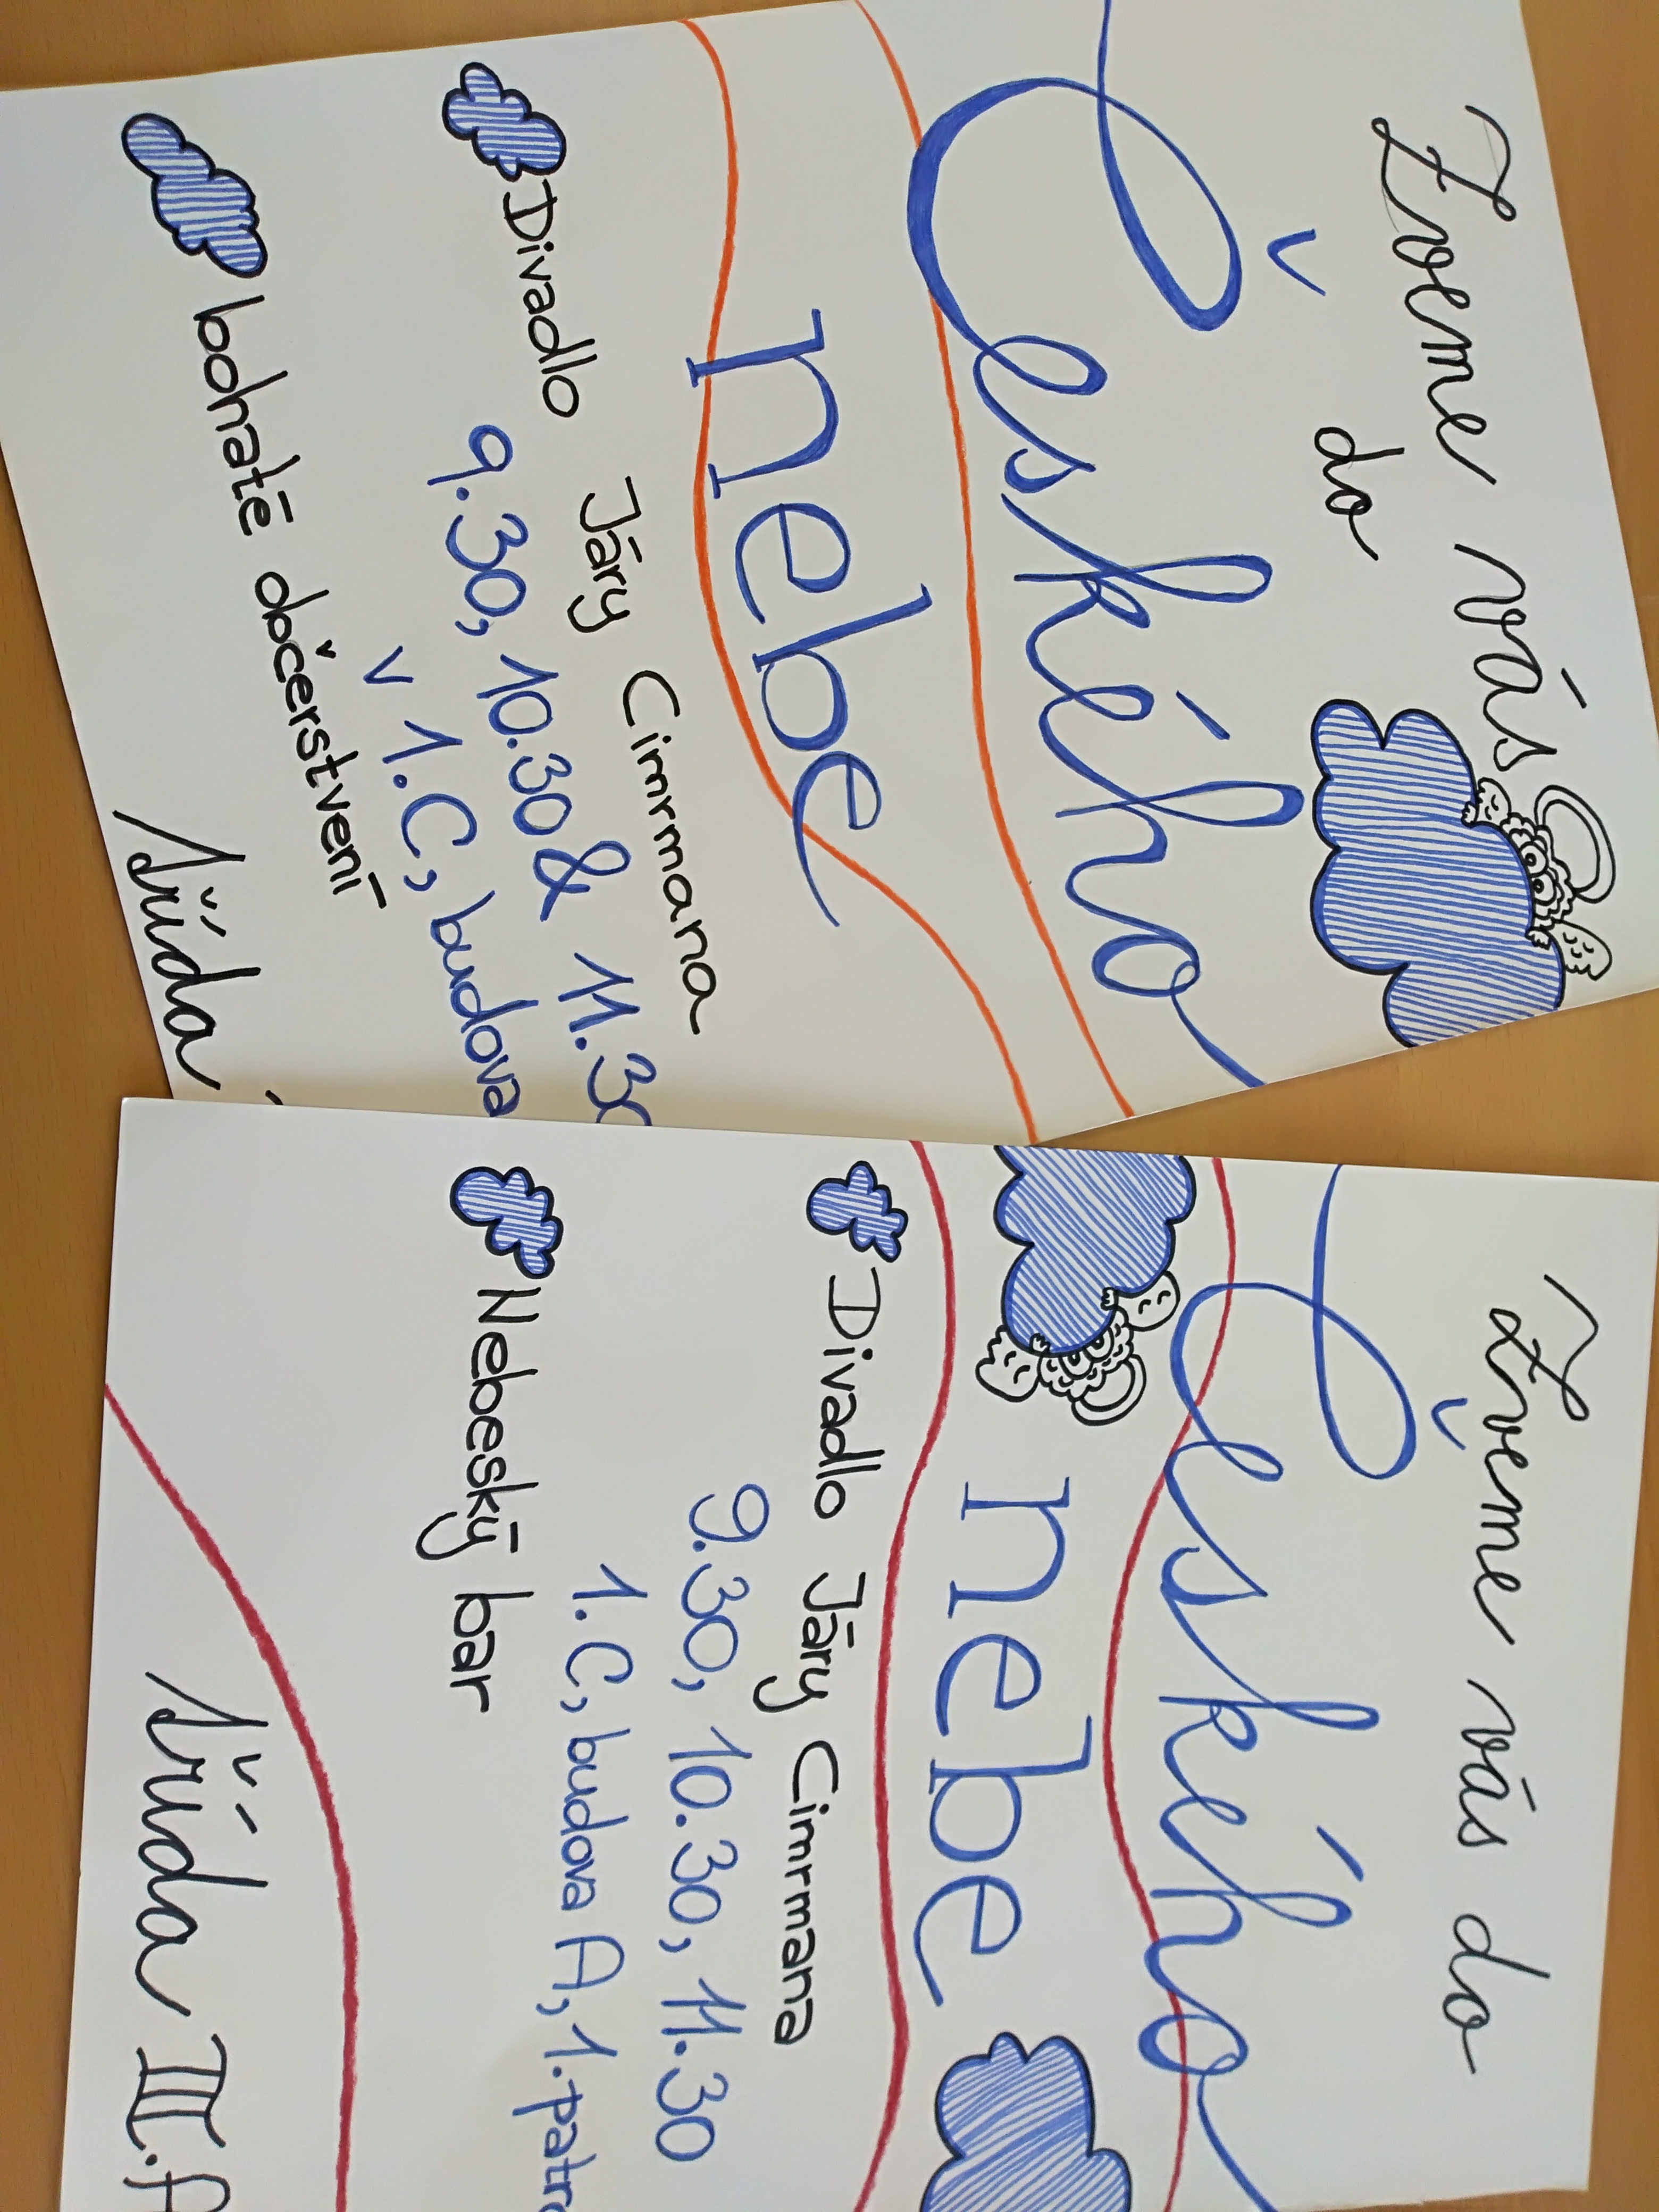 Zveme vás
do
Českého
nebe
Divadlo Járy Cimrmana
9.30, 10.30 & 11.30
v 1.C, budova
bohaté občerstvení
třída
Zveme vás do
Českého
nebe
Divadlo Járy Cimrmana
9.30, 10.30, 11.30
1.C, budova A, 1. patro
Nebeský bar
třída III.A